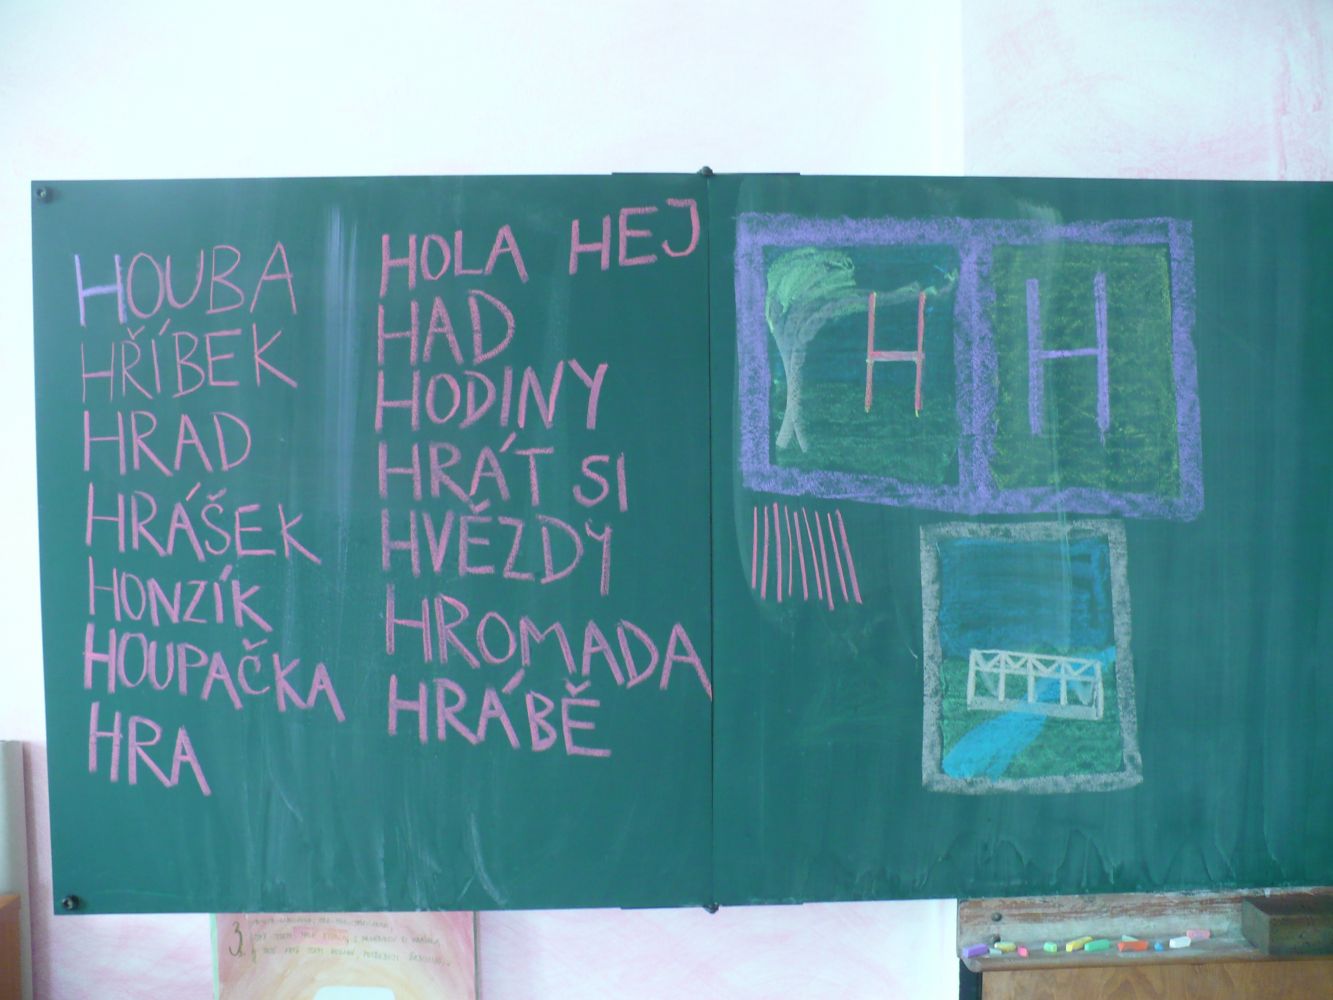 HOUBA
HŘÍBEK
HRAD
HRÁŠEK
HONZÍK
HOUPAČKA
HRA
HOLA HEJ
HAD
HODINY
HRÁT SI
HVĚZDY
HROMADA
HRÁBĚ
H H
3.